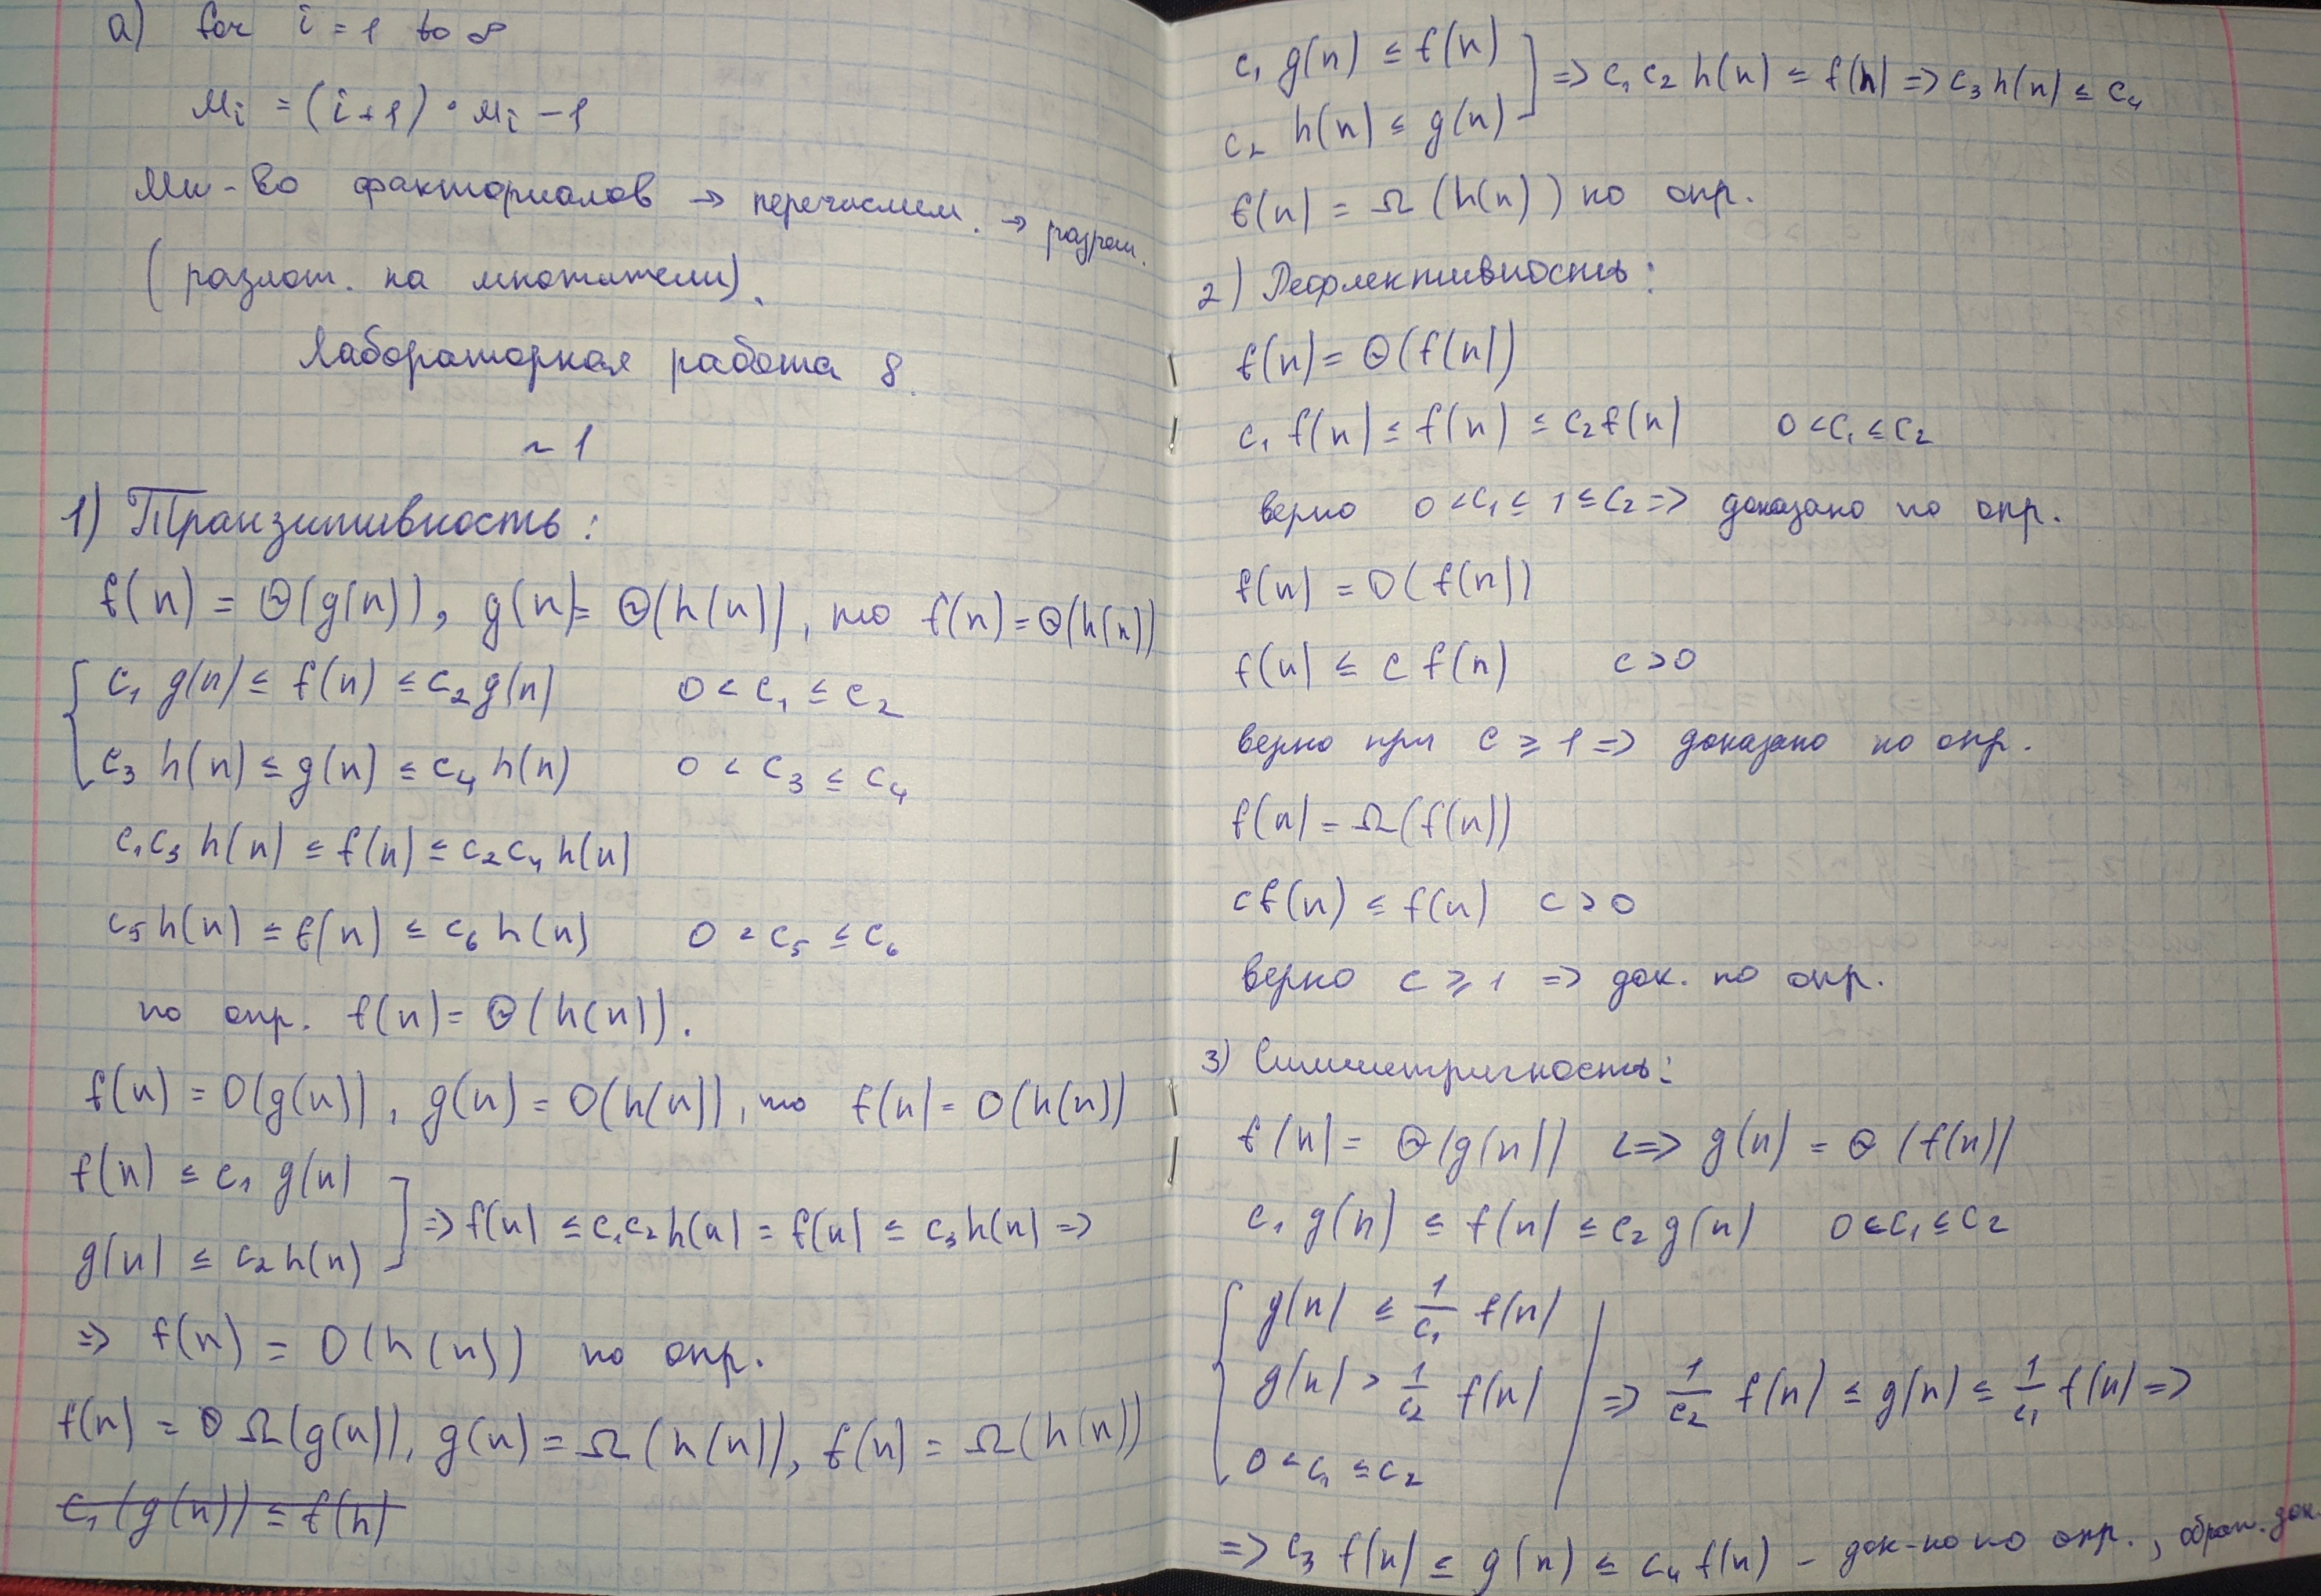 а) for i = 1 to ∞
Mi = (i+1) · Mi - 1
Мн-во факториалов → перечислим. → разреш.
(разлож. на множители).
Лабораторная работа 8.
~ 1
1) Транзитивность:
f(n) = Θ(g(n)), g(n) = Θ(h(n)), то f(n) = Θ(h(n))
c₁ g(n) ≤ f(n) ≤ c₂ g(n) 0 < c₁ ≤ c₂
c₃ h(n) ≤ g(n) ≤ c₄ h(n) 0 < c₃ ≤ c₄
c₁c₃ h(n) ≤ f(n) ≤ c₂c₄ h(n)
c₅ h(n) ≤ f(n) ≤ c₆ h(n) 0 < c₅ ≤ c₆
по опр. f(n) = Θ(h(n)).
f(n) = O(g(n)), g(n) = O(h(n)), то f(n) = O(h(n))
f(n) ≤ c₁ g(n)
g(n) ≤ c₂ h(n) ] => f(n) ≤ c₁c₂ h(n) = f(n) ≤ c₃ h(n) =>
=> f(n) = O(h(n)) по опр.
f(n) = Ω(g(n)), g(n) = Ω(h(n)), f(n) = Ω(h(n))
c₁ (g(n)) ≤ f(n)
c₁ g(n) ≤ f(n)
c₂ h(n) ≤ g(n) ] => c₁ c₂ h(n) ≤ f(n) => c₃ h(n) ≤ c₄
f(n) = Ω (h(n)) по опр.
2) Рефлективность:
f(n) = Θ(f(n))
c₁ f(n) ≤ f(n) ≤ c₂ f(n) 0 < c₁ ≤ c₂
верно 0 < c₁ ≤ 1 ≤ c₂ => доказано по опр.
f(n) = O(f(n))
f(n) ≤ c f(n) c > 0
верно при c ⩾ 1 => доказано по опр.
f(n) = Ω(f(n))
cf(n) ≤ f(n) c > 0
верно c ⩾ 1 => док. по опр.
3) Симметричность:
f(n) = Θ(g(n)) <=> g(n) = Θ (f(n))
c₁ g(n) ≤ f(n) ≤ c₂ g(n) 0 < c₁ ≤ c₂
g(n) ≤ 1/c₁ f(n)
g(n) > 1/c₂ f(n) => 1/c₂ f(n) ≤ g(n) ≤ 1/c₁ f(n) =>
0 < c₁ ≤ c₂
=> c₃ f(n) ≤ g(n) ≤ c₄ f(n) - док-но по опр., док.